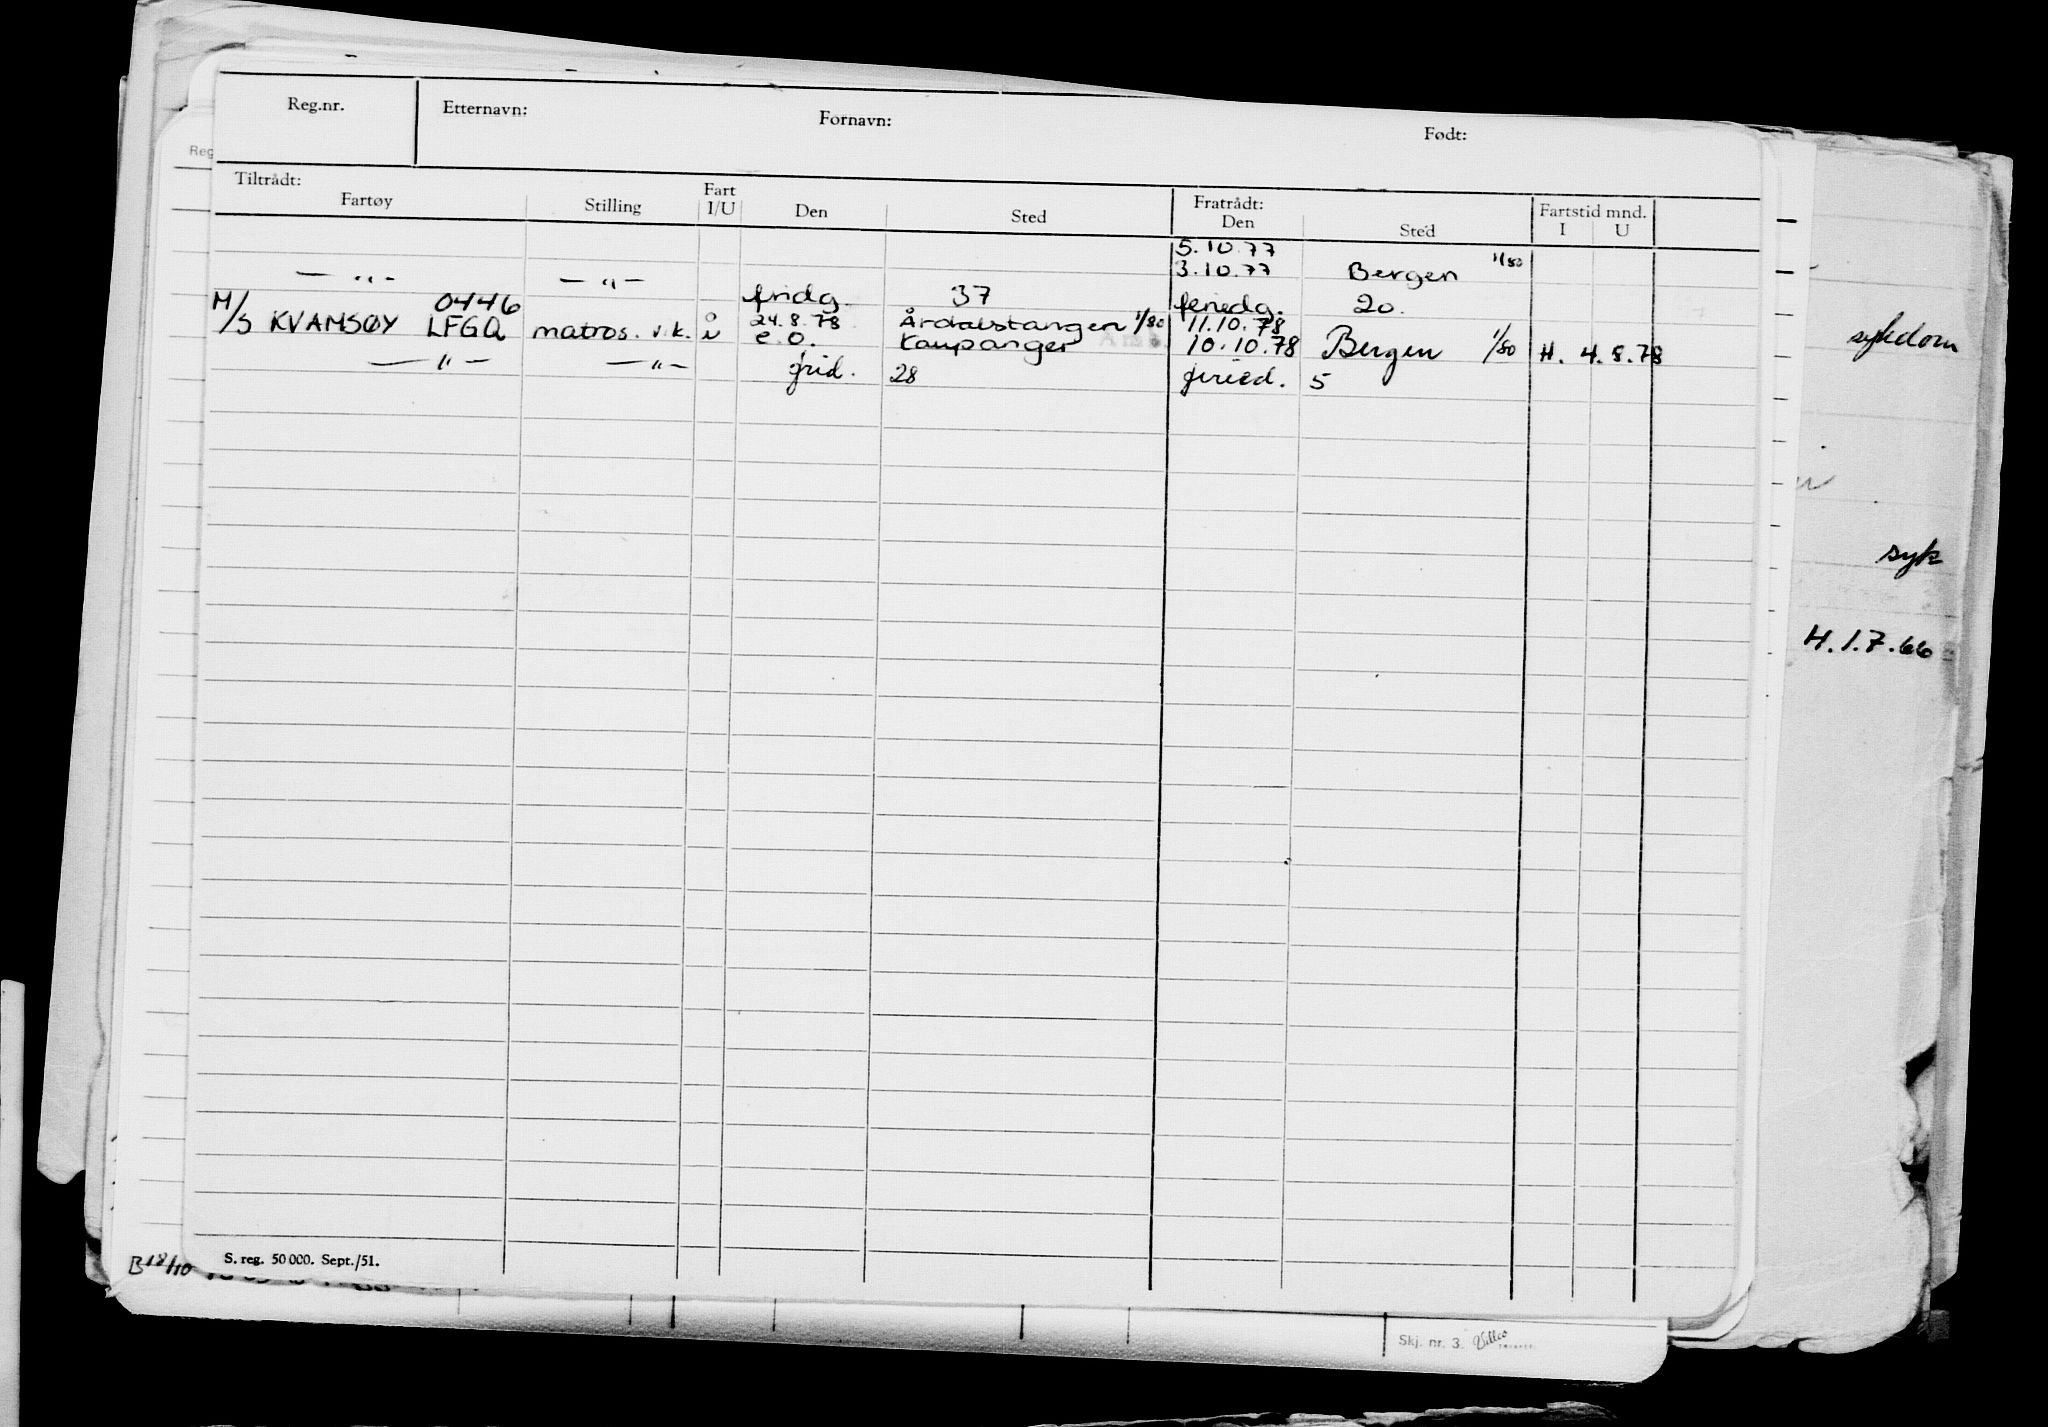 Reg.nr. Etternavn: Fornavn: Født:
Reg
Tiltrådt: Fratrådt:
Fartøy Stilling Fart I/U Den Sted Den Sted Fartstid mnd. I U
5.10.77
— „ — — „ — 3.10.77 Bergen 1/80
0446 fridg. 37 feriedg. 20.
M/S KVAMSØY LFGQ matros. v.k. 24.8.78 Årdalstangen 1/80 11.10.78
e.o. Kaupanger 10.10.78 Bergen 1/80 H. 4.8.78
— „ — — „ — frid. 28 feried. 5
sykdom
syk
H.1.7.66
S. reg. 50 000. Sept./51.
B 18/10
Skj. nr. 3.